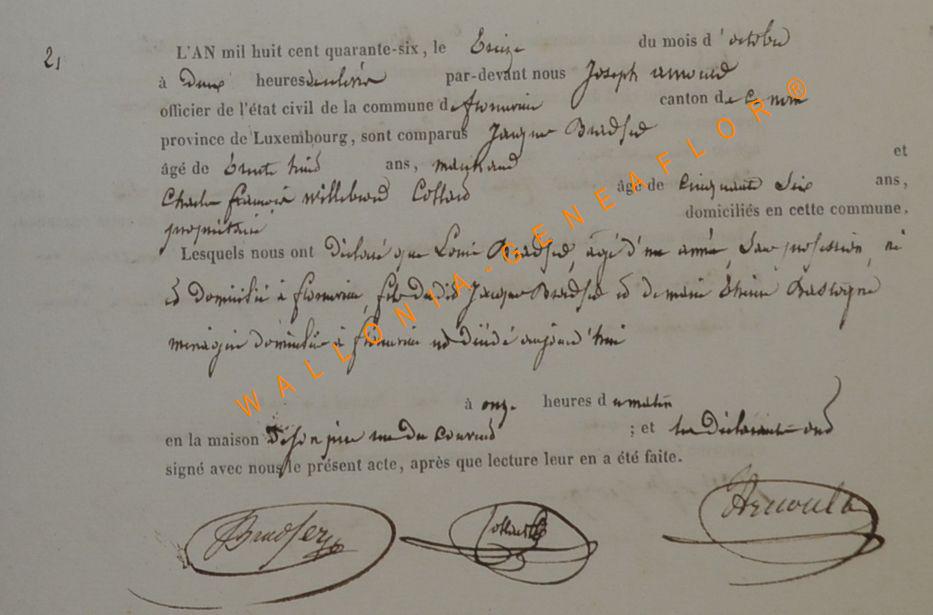 2,
L'AN mil huit cent quarante-six, le treize du mois d'octobre
à deux heures de relevée par-devant nous Joseph
officier de l'état civil de la commune de florenville canton de ce nom
province de Luxembourg, sont comparus Jacques Bradfer
âgé de trente trois ans, marchand et
Charles françois willebrord Collard âgé de cinquante six ans,
propriétaire domiciliés en cette commune.
Lesquels nous ont déclaré que Louis Bradfer, âgé d'une année, sans profession, né
et domicilié à florenville, fils dudit Jacques Bradfer et de marie thérèse Bastogne
ménagère domiciliée à florenville est décédé aujourd'hui
à onze heures du matin
en la maison de son père rue du couvent ; et les déclarants ont
signé avec nous le présent acte, après que lecture leur en a été faite.
Bradfer Collard
WALLONIA-GENEAFLOR®